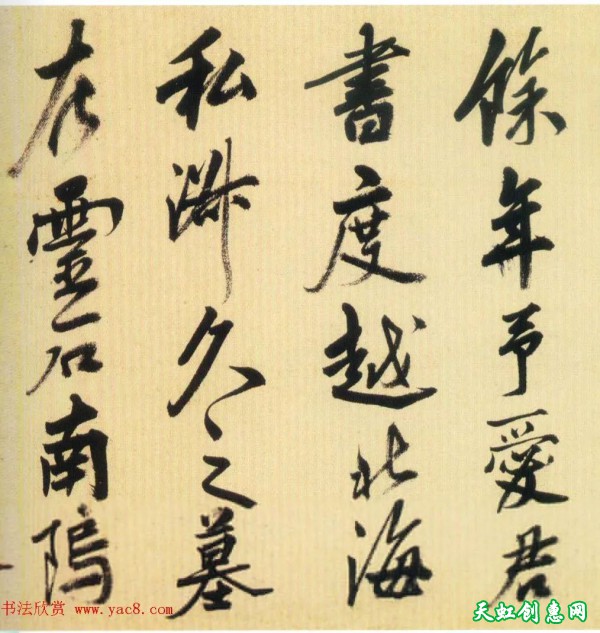 餘年予愛君
書度越北海
私淑久之墓
在靈石南隖
书法欣赏 www.yac8.com
天虹创惠网